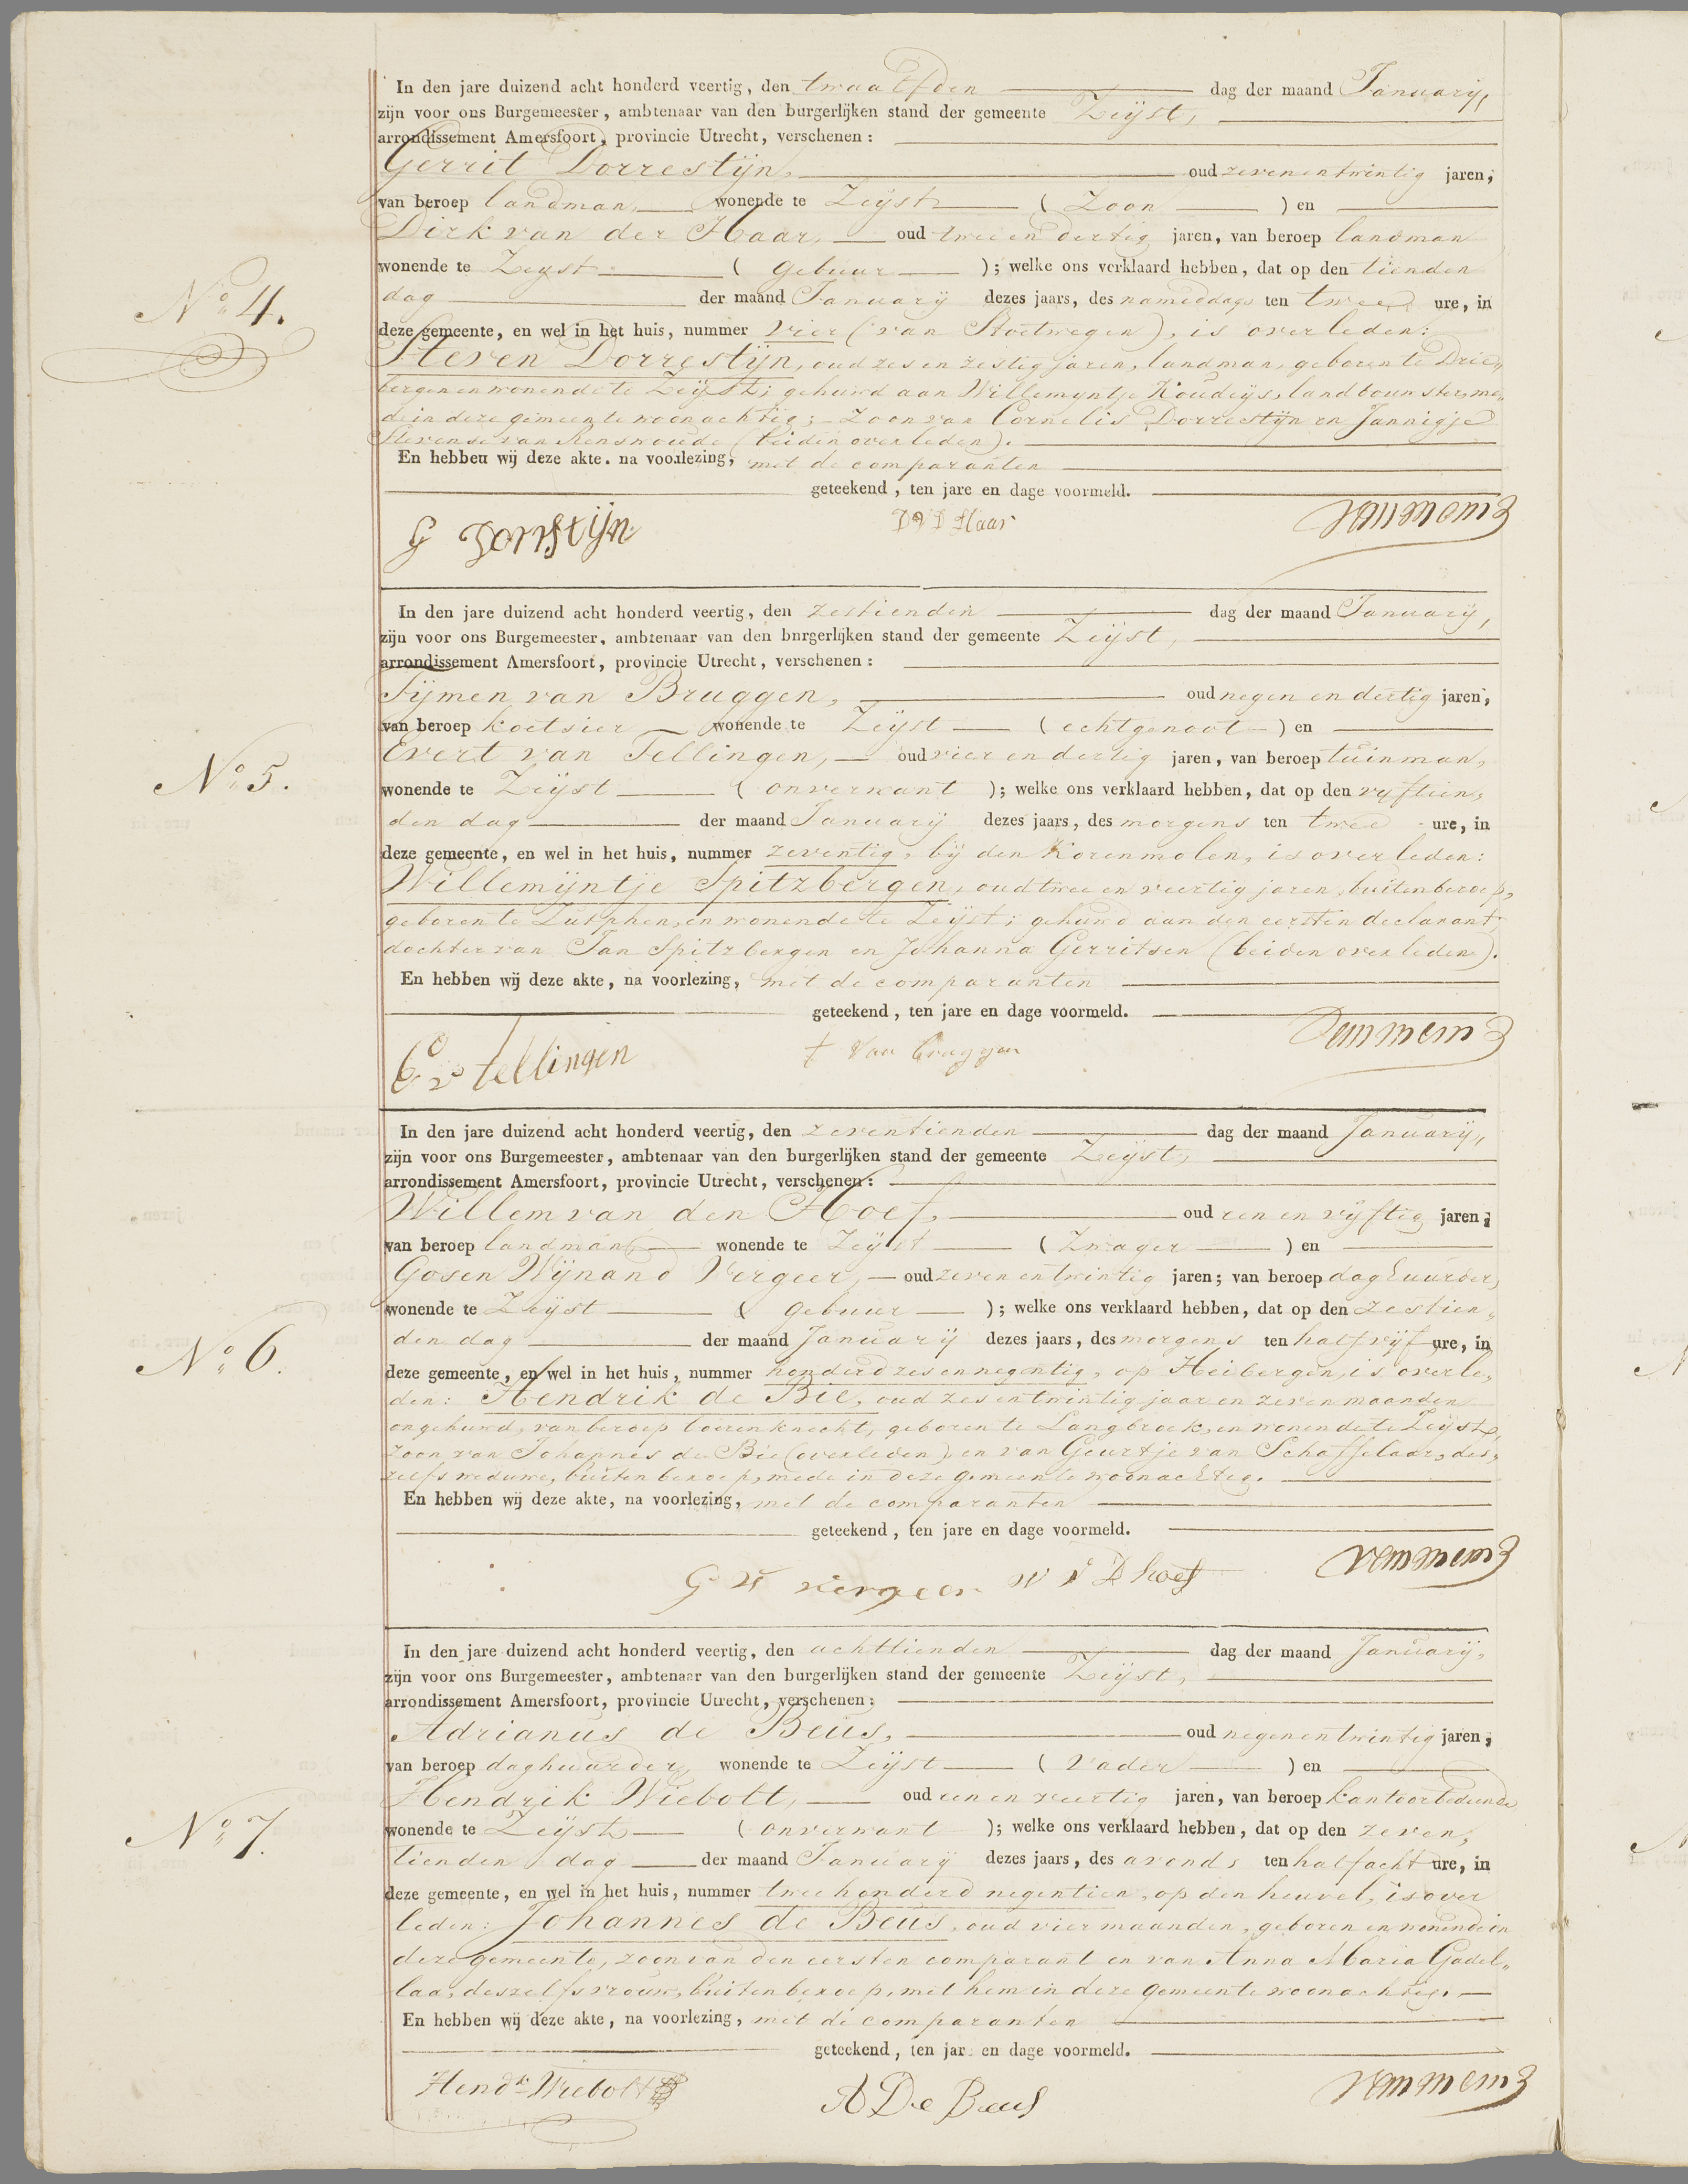 In den jare duizend acht honderd veertig, den twaalfden dag der maand January,
zijn voor ons Burgemeester, ambtenaar van den burgerlijken stand der gemeente Zeijst,
arrondissement Amersfoort, provincie Utrecht, verschenen:
Gerrit Dorrestijn, oud zevenentwintig jaren,
van beroep landman, wonende te Zeijst (Zoon) en
Dirk van der Haar, oud twee en dertig jaren, van beroep landman
wonende te Zeyst (gebuur); welke ons verklaard hebben, dat op den tienden
No 4.
dag der maand January dezes jaars, des nameddags ten twee ure, in
deze gemeente, en wel in het huis, nummer vier (van Stoetwegen), is overleden:
Steven Dorrestijn, oud zes en zestig jaren, landman, geboren te Drie„
bergen en wonende te Zeijst; gehuwd aan Willemyntje Koudijs, landbouwster, me„
de in deze gemeente woonachtig; zoon van Cornelis Dorrestijn en Jannigje
Stevense van Renswoude (beiden overleden).
En hebben wij deze akte. na voorlezing, met de comparanten
geteekend, ten jare en dage voormeld.
G Dorrstijn D V D Haar
In den jare duizend acht honderd veertig, den zestienden dag der maand Januarij,
zijn voor ons Burgemeester, ambtenaar van den bnrgerlijken stand der gemeente Zeijst,
arrondissement Amersfoort, provincie Utrecht, verschenen:
Tijmen van Bruggen, oud negen en dertig jaren,
van beroep koetsier wonende te Zeijst (echtgenoot) en
Evert van Tellingen, oud vier en dertig jaren, van beroep tuinman,
No 5.
wonende te Zeijst (onverwant); welke ons verklaard hebben, dat op den vyftien„
den dag der maand Januarij dezes jaars, des morgens ten twee ure, in
deze gemeente, en wel in het huis, nummer zeventig, bij den Korenmolen, is overleden:
Willemijntje Spitzbergen, oud twee en veertig jaren, buiten beroep,
geboren te Zutphen, en wonende te Zeijst; gehuwd aan den eersten declarant;
dochter van Jan Spitzbergen en Johanna Gerritsen (beiden overleden).
En hebben wij deze akte, na voorlezing, met de comparanten
geteekend, ten jare en dage voormeld.
E v tellingen t van Bruggen
In den jare duizend acht honderd veertig, den zeventienden dag der maand Januarij,
zijn voor ons Burgemeester, ambtenaar van den burgerlijken stand der gemeente Zeijst,
arrondissement Amersfoort, provincie Utrecht, verschenen:
Willem van den Hoef, oud een en vyftig jaren,
van beroep landman, wonende te Zeijst (Zwager) en
Gosen Wijnand Vergeer, oud zeven en twintig jaren; van beroep daghuurder,
wonende te Zeijst (gebuur); welke ons verklaard hebben, dat op den zestien„
No 6.
den dag der maand Januarij dezes jaars, des morgens ten half vijf ure, in
deze gemeente, en wel in het huis, nummer honderd zes en negentig, op Heibergen, is overle„
den: Hendrik de Bie, oud zes en twintig jaar en zeven maanden
ongehuwd, van beroep boerenknecht, geboren te Langbroek, en wonende te Zeijst,
zoon van Johannes de Bie (overleden), en van Geurtje van Schaffelaar, des„
zelfs weduwe, buiten beroep, mede in deze gemeente woonachtig.
En hebben wij deze akte, na voorlezing, met de comparanten
geteekend, ten jare en dage voormeld.
G W vergeer W v D hoef
In den jare duizend acht honderd veertig, den achttienden dag der maand Januarij,
zijn voor ons Burgemeester, ambtenaar van den burgerlijken stand der gemeente Zeijst,
arrondissement Amersfoort, provincie Utrecht, verschenen:
Adrianus de Beus, oud negenentwintig jaren,
van beroep daghuurder, wonende te Zeijst (Vader) en
Hendrik Wiebolt, oud een en veertig jaren, van beroep kantoorbediende
No 7.
wonende te Zeijst (onverwant); welke ons verklaard hebben, dat op den zeven„
tienden dag der maand Januarij dezes jaars, des avonds ten half acht ure, in
deze gemeente, en wel in het huis, nummer twee honderd negentien, op den heuvel, is over
leden: Johannes de Beus, oud vier maanden, geboren en wonende in
deze gemeente, zoon van den eersten comparant en van Anna Maria Gadel„
laa, deszelfs vrouw, buiten beroep, met hem in deze gemeente woonachtig.
En hebben wij deze akte, na voorlezing, met de comparanten
geteekend, ten jar en dage voormeld.
Hendk Wiebolt A De Beus